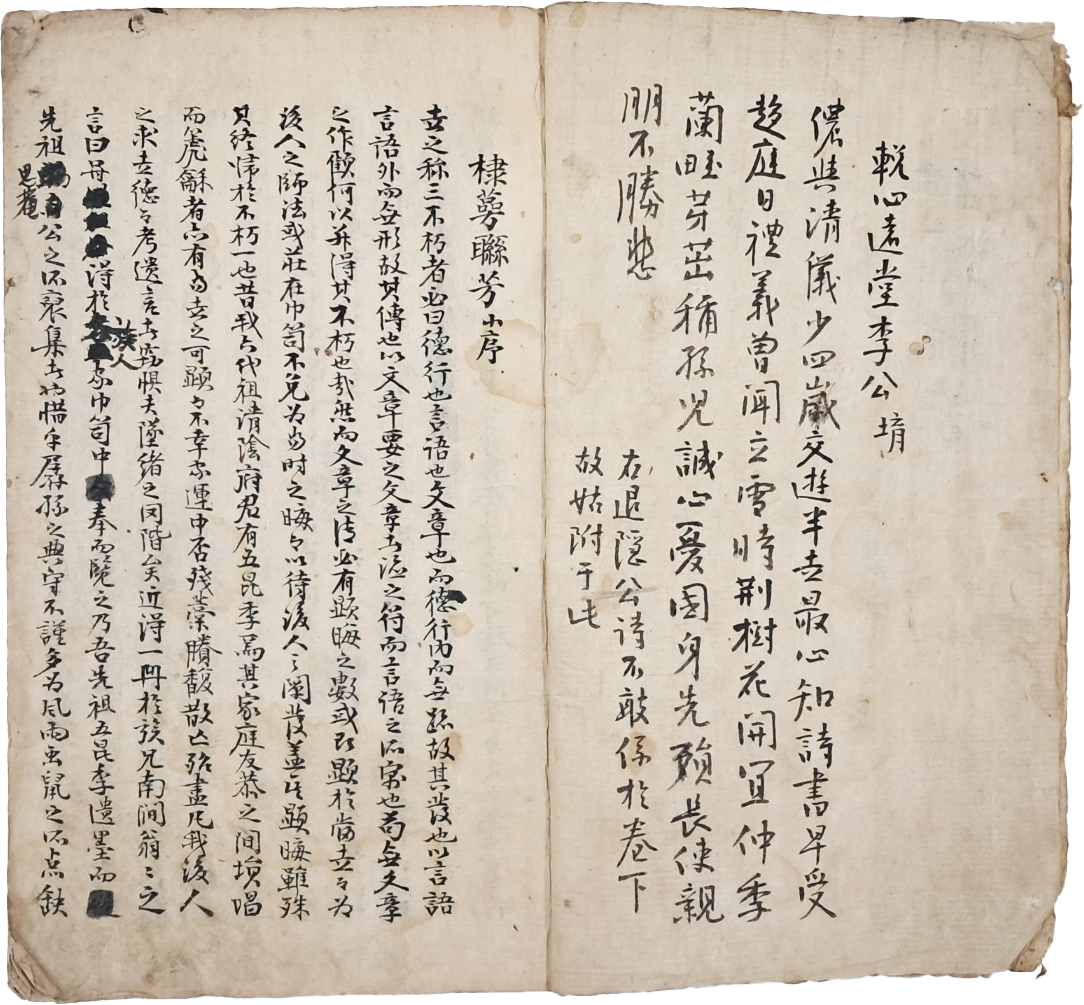 輓心遠堂李公堉
儂與淸儀少四歲交遊半世最心知詩書早受
趍庭日禮義曾聞立雪時荆樹花開宜仲季
蘭畦芽茁稱孫兒誠心憂國身先殞長使親
朋不勝悲
右退隱公詩不敢係於卷下
故姑附于此
棣蕚聯芳小序
世之称三不朽者必曰德行也言語也文章也而德行內而無跡故其發也以言語
言語外而無形故其傳也以文章要之文章者流之符而言語之所寓也苟無文章
之作歟何以并得其不朽也哉然而文章之傳必有顯晦之數或即顯於當世以爲
後人之師法或莊在巾笥不免为当时之晦以待後人之闡發盖其顯晦雖殊
其終㱕於不朽一也昔我六代祖淸陰府君有五昆季焉其家庭友恭之間塤唱
而箎龢者亦有当世之可顯不幸家運中否殘藁賸馥散亡殆盡凡我後人
之求世德考遺言者竊惧夫墜緖之罔階矣近得一冊於族兄南澗翁之
言曰得於族人家巾笥中奉而覽之乃吾先祖五昆季遺墨而
先祖思菴公之所裒集者惜乎孱孫之典守不謹多为風雨虫鼠之所点缺